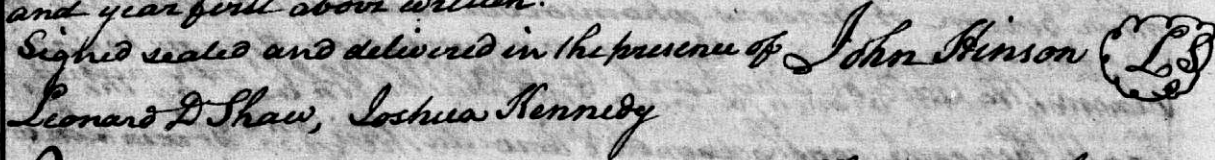 and year first above written.
Signed sealed and delivered in the presence of John Hinson LS
Leonard D Shaw, Joshua Kennedy